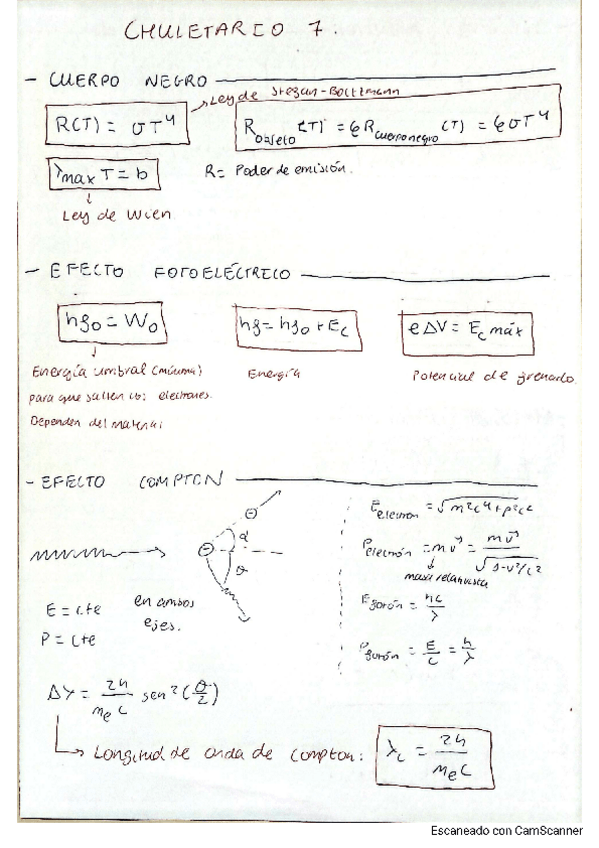 CHULETARIO 7.
- CUERPO NEGRO
R(T) = σT⁴
Ley de Stefan-Boltzmann
R_objeto (T) = ϵR_cuerpo negro (T) = ϵσT⁴
λmax T = b
R = Poder de emisión.
Ley de Wien
- EFECTO FOTOELÉCTRICO
hf₀ = W₀
hf = hf₀ + Ec
eΔV = Ec máx
Energía umbral (mínima)
para que salten electrones.
Dependen del material
Energía
Potencial de frenado.
- EFECTO COMPTON
α
θ
E = cte
P = cte
en ambos
ejes.
E_electrón = √m²c⁴+p²c²
P_electrón = mv⃗ = mv⃗ / √1-v²/c²
masa relativista
E_fotón = hc/λ
P_fotón = E/c = h/λ
Δλ = 2h/mₑc sen²(θ/2)
Longitud de onda de compton:
λc = 2h/mₑc
Escaneado con CamScanner